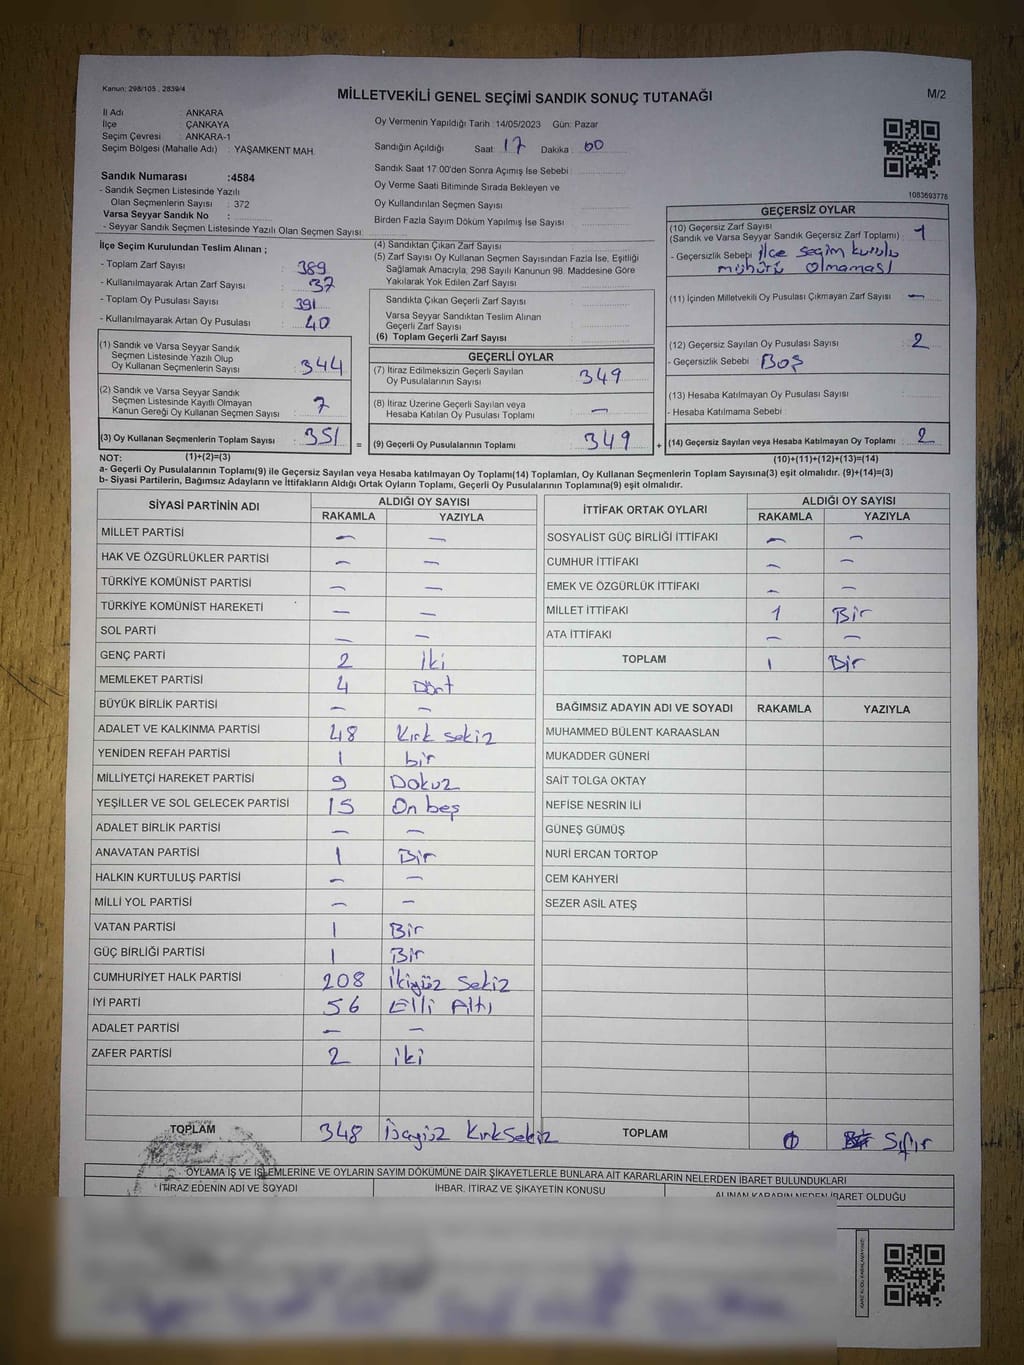 Kanun: 298/105 , 2839/4
MİLLETVEKİLİ GENEL SEÇİMİ SANDIK SONUÇ TUTANAĞI
M/2
İl Adı : ANKARA
İlçe : ÇANKAYA
Seçim Çevresi : ANKARA-1
Seçim Bölgesi (Mahalle Adı) : YAŞAMKENT MAH.
Sandık Numarası :4584
- Sandık Seçmen Listesinde Yazılı
Olan Seçmenlerin Sayısı : 372
Varsa Seyyar Sandık No :
- Seyyar Sandık Seçmen Listesinde Yazılı Olan Seçmen Sayısı:
Oy Vermenin Yapıldığı Tarih :14/05/2023 Gün: Pazar
Sandığın Açıldığı Saat: 17 Dakika : 00
Sandık Saat 17:00'den Sonra Açımış İse Sebebi :
Oy Verme Saati Bitiminde Sırada Bekleyen ve
Oy Kullandırılan Seçmen Sayısı
Birden Fazla Sayım Döküm Yapılmış İse Sayısı
1083693776
İlçe Seçim Kurulundan Teslim Alınan ;
- Toplam Zarf Sayısı : 389
- Kullanılmayarak Artan Zarf Sayısı : 37
- Toplam Oy Pusulası Sayısı : 391
- Kullanılmayarak Artan Oy Pusulası : 40
(1) Sandık ve Varsa Seyyar Sandık
Seçmen Listesinde Yazılı Olup
Oy Kullanan Seçmenlerin Sayısı : 344
(2) Sandık ve Varsa Seyyar Sandık
Seçmen Listesinde Kayıtlı Olmayan
Kanun Gereği Oy Kullanan Seçmen Sayısı : 7
(3) Oy Kullanan Seçmenlerin Toplam Sayısı : 351
(4) Sandıktan Çıkan Zarf Sayısı
(5) Zarf Sayısı Oy Kullanan Seçmen Sayısından Fazla İse, Eşitliği
Sağlamak Amacıyla, 298 Sayılı Kanunun 98. Maddesine Göre
Yakılarak Yok Edilen Zarf Sayısı
Sandıkta Çıkan Geçerli Zarf Sayısı
Varsa Seyyar Sandıktan Teslim Alınan
Geçerli Zarf Sayısı
(6) Toplam Geçerli Zarf Sayısı
GEÇERLİ OYLAR
(7) İtiraz Edilmeksizin Geçerli Sayılan
Oy Pusulalarının Sayısı : 349
(8) İtiraz Üzerine Geçerli Sayılan veya
Hesaba Katılan Oy Pusulası Toplamı : —
= (9) Geçerli Oy Pusulalarının Toplamı : 349
GEÇERSİZ OYLAR
(10) Geçersiz Zarf Sayısı
(Sandık ve Varsa Seyyar Sandık Geçersiz Zarf Toplamı) : 1
- Geçersizlik Sebebi : ilçe seçim kurulu
mührü olmaması
(11) İçinden Milletvekili Oy Pusulası Çıkmayan Zarf Sayısı : —
(12) Geçersiz Sayılan Oy Pusulası Sayısı : 2
- Geçersizlik Sebebi : Boş
(13) Hesaba Katılmayan Oy Pusulası Sayısı :
- Hesaba Katılmama Sebebi :
+ (14) Geçersiz Sayılan veya Hesaba Katılmayan Oy Toplamı : 2
NOT: (1)+(2)=(3)
(10)+(11)+(12)+(13)=(14)
a- Geçerli Oy Pusulalarının Toplamı(9) ile Geçersiz Sayılan veya Hesaba katılmayan Oy Toplamı(14) Toplamları, Oy Kullanan Seçmenlerin Toplam Sayısına(3) eşit olmalıdır. (9)+(14)=(3)
b- Siyasi Partilerin, Bağımsız Adayların ve İttifakların Aldığı Ortak Oyların Toplamı, Geçerli Oy Pusulalarının Toplamına(9) eşit olmalıdır.
SİYASİ PARTİNİN ADI ALDIĞI OY SAYISI
RAKAMLA YAZIYLA
MİLLET PARTİSİ — —
HAK VE ÖZGÜRLÜKLER PARTİSİ — —
TÜRKİYE KOMÜNİST PARTİSİ — —
TÜRKİYE KOMÜNİST HAREKETİ — —
SOL PARTİ — —
GENÇ PARTİ 2 İki
MEMLEKET PARTİSİ 4 Dört
BÜYÜK BİRLİK PARTİSİ — —
ADALET VE KALKINMA PARTİSİ 48 Kırk sekiz
YENİDEN REFAH PARTİSİ 1 bir
MİLLİYETÇİ HAREKET PARTİSİ 9 Dokuz
YEŞİLLER VE SOL GELECEK PARTİSİ 15 On beş
ADALET BİRLİK PARTİSİ — —
ANAVATAN PARTİSİ 1 Bir
HALKIN KURTULUŞ PARTİSİ — —
MİLLİ YOL PARTİSİ — —
VATAN PARTİSİ 1 Bir
GÜÇ BİRLİĞİ PARTİSİ 1 Bir
CUMHURİYET HALK PARTİSİ 208 İkiyüz Sekiz
İYİ PARTİ 56 Elli Altı
ADALET PARTİSİ — —
ZAFER PARTİSİ 2 iki
TOPLAM 348 Üçyüz Kırksekiz
İTTİFAK ORTAK OYLARI ALDIĞI OY SAYISI
RAKAMLA YAZIYLA
SOSYALİST GÜÇ BİRLİĞİ İTTİFAKI — —
CUMHUR İTTİFAKI — —
EMEK VE ÖZGÜRLÜK İTTİFAKI — —
MİLLET İTTİFAKI 1 Bir
ATA İTTİFAKI — —
TOPLAM 1 Bir
BAĞIMSIZ ADAYIN ADI VE SOYADI RAKAMLA YAZIYLA
MUHAMMED BÜLENT KARAASLAN
MUKADDER GÜNERİ
SAİT TOLGA OKTAY
NEFİSE NESRİN İLİ
GÜNEŞ GÜMÜŞ
NURİ ERCAN TORTOP
CEM KAHYERİ
SEZER ASİL ATEŞ
TOPLAM 0 Sıfır
OYLAMA İŞ VE İŞLEMLERİNE VE OYLARIN SAYIM DÖKÜMÜNE DAİR ŞİKAYETLERLE BUNLARA AİT KARARLARIN NELERDEN İBARET BULUNDUKLARI
İTİRAZ EDENİN ADI VE SOYADI İHBAR, İTİRAZ VE ŞİKAYETİN KONUSU ALINAN KARARIN NEDEN İBARET OLDUĞU